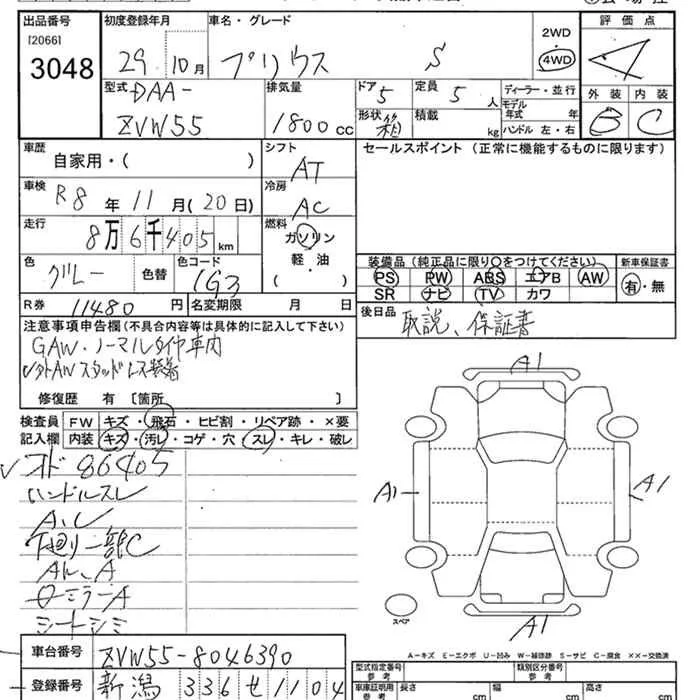 出品番号 初度登録年月 車名・グレード 2WD 評価点
[2066]
3048 29年10月 プリウス S 4WD 4
型式 排気量 ドア 定員 ディーラー・並行 外装 内装
DAA- 5 5人 モデル年式 年 B C
ZVW55 1800cc 形状 箱 積載 kg ハンドル 左・右
車歴 シフト セールスポイント (正常に機能するものに限ります)
自家用・( ) AT
車検 冷房
R8年11月(20日) AC
走行 燃料
8万6千405km ガソリン
色 色替 色コード 軽・油 装備品(純正品に限り○をつけてください) 新車保証書
グレー 1G3 ( ) PS PW ABS エアB AW 有・無
SR ナビ TV カワ
R券 11480円 名変期限 月 日 後日品 取説、保証書
注意事項申告欄(不具合内容等は具体的に記入して下さい)
GAW・ノーマルタイヤ車内
修復歴 有 〔箇所 〕
検査員 FW キズ・飛石・ヒビ割・リペア跡・×要
記入欄 内装 キズ・汚レ・コゲ・穴・スレ・キレ・破レ
オド 86405
ハンドルスレ
下廻り一部C
シートシミ
A1
A1
A1
A1
スペア
A−キズ E−エクボ U−凹み W−補修跡 S−サビ C−腐食 ××−交換済
車台番号 ZVW55-8046390 型式指定番号 参考 類別区分番号 参考
登録番号 新潟 336 せ 1104 車庫証明用 参考 長さ cm 幅 cm 高さ cm